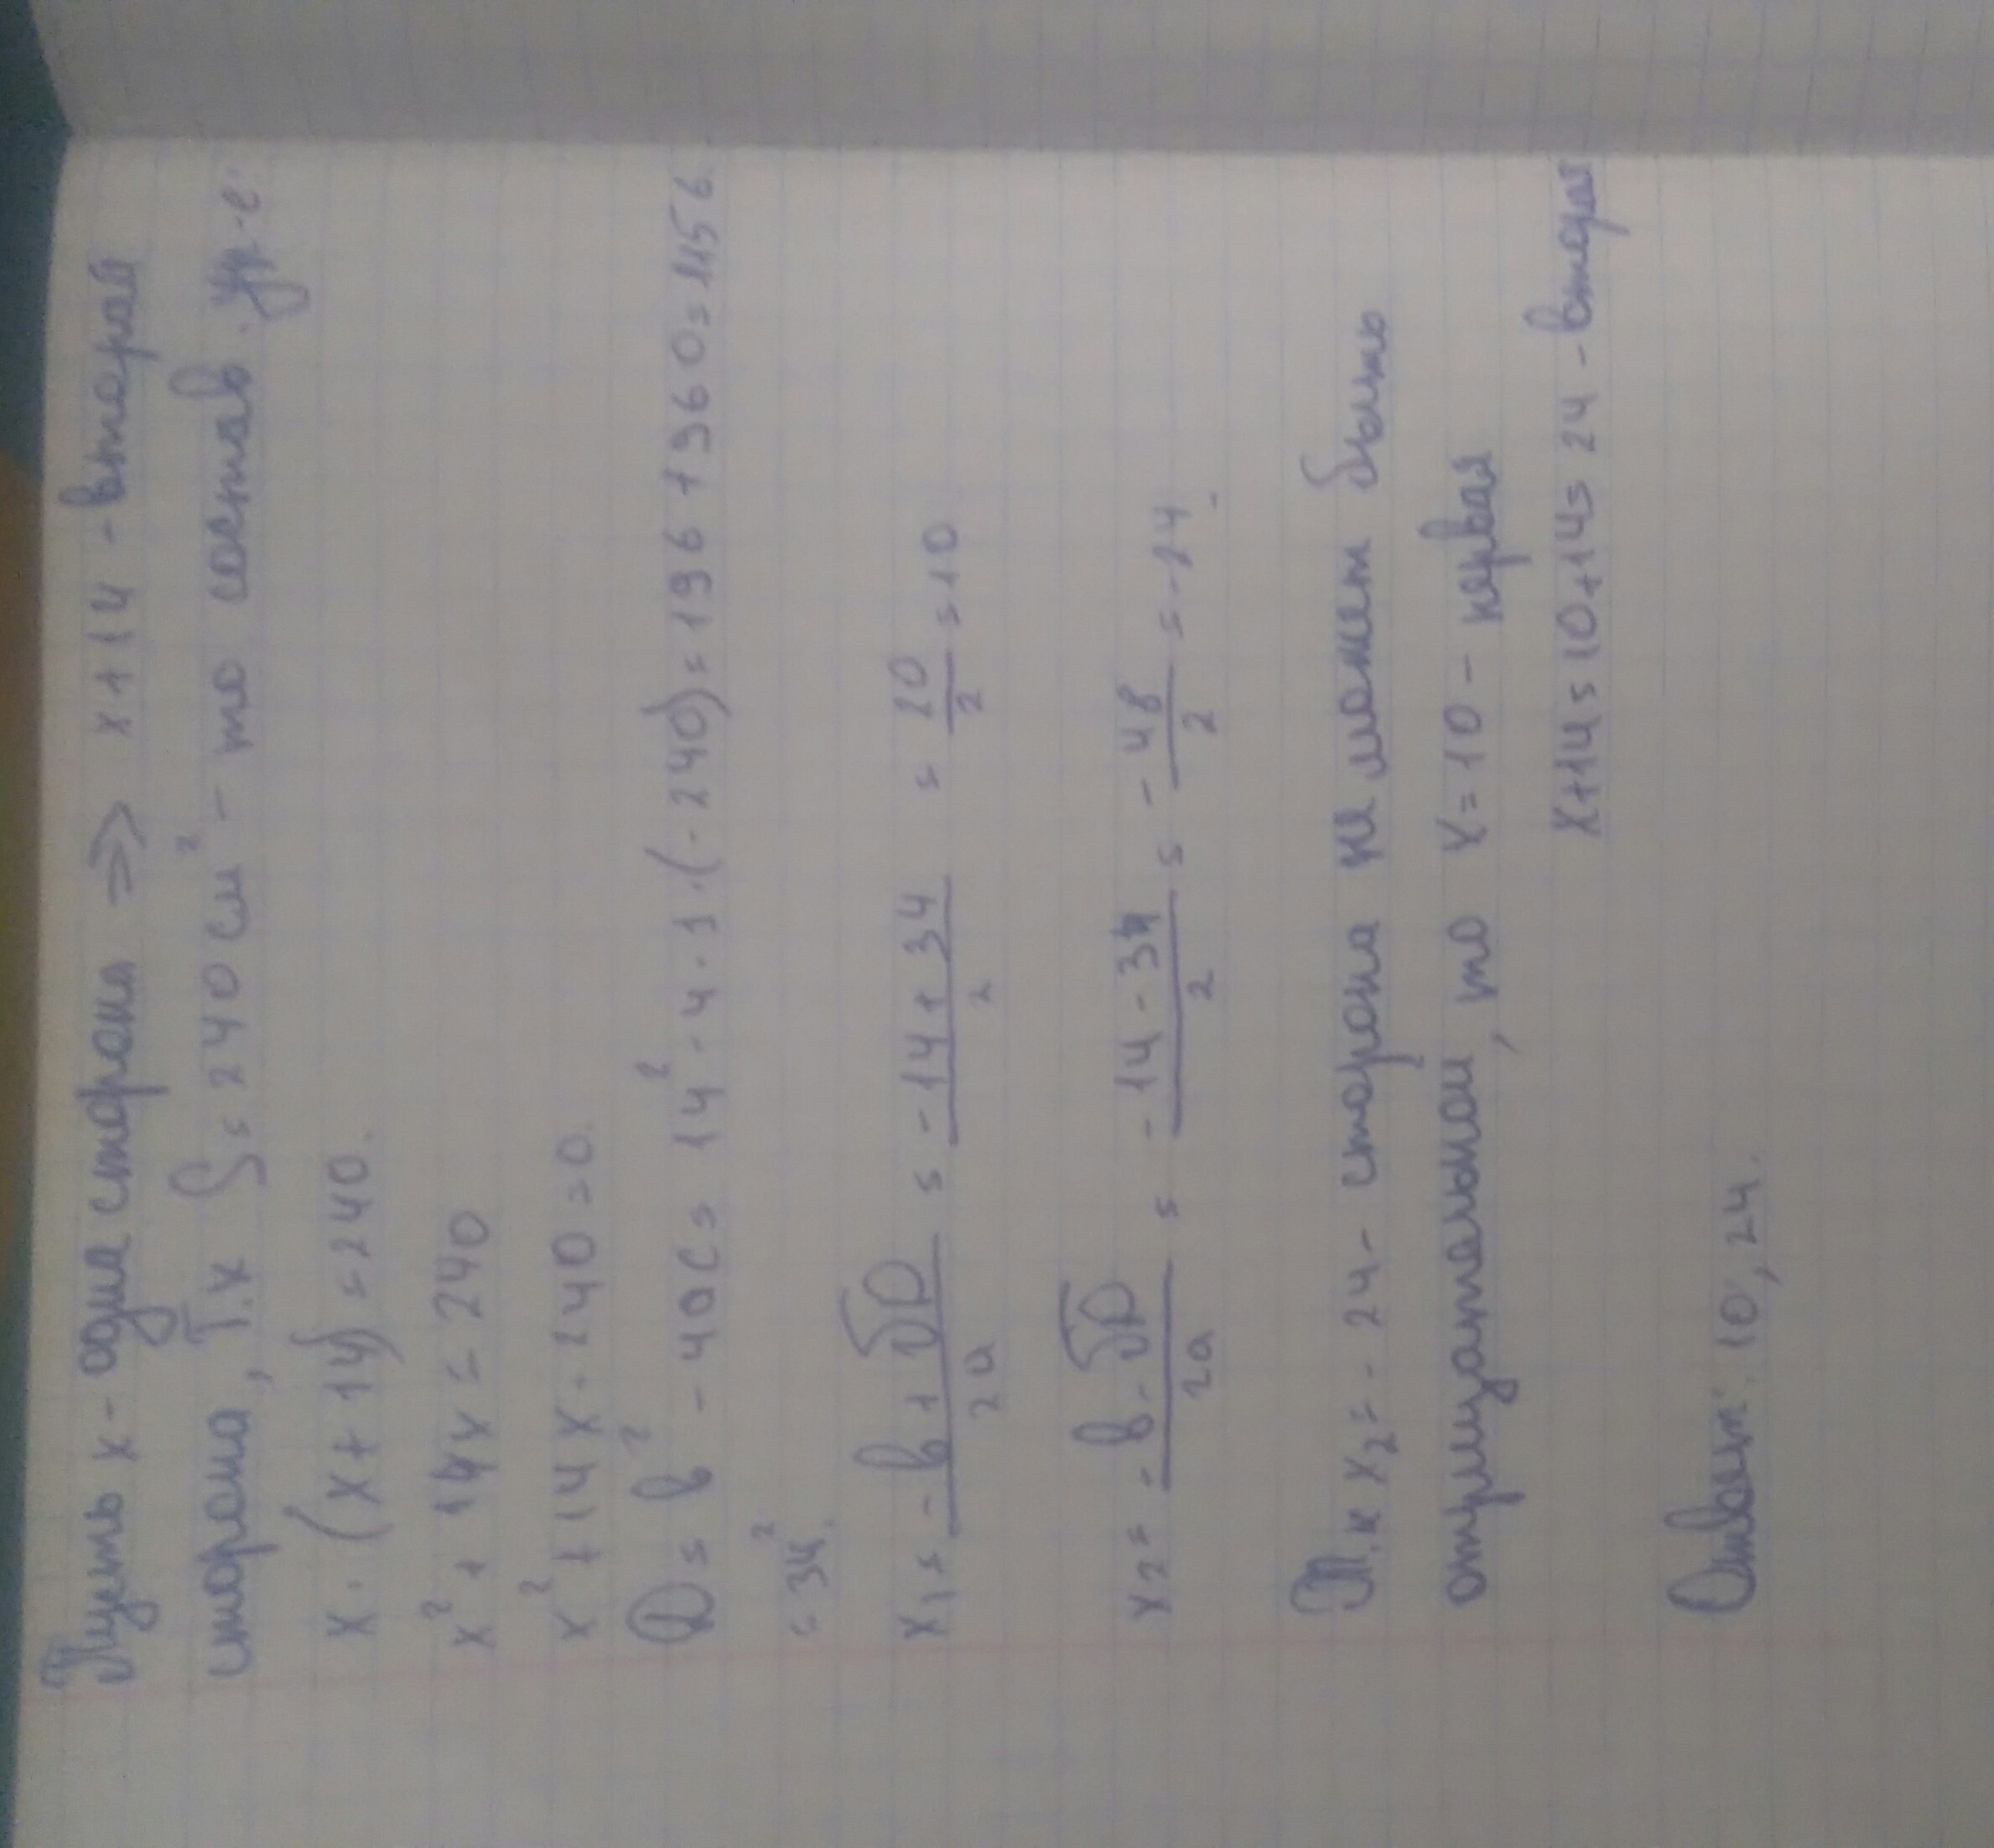 Пусть x - одна сторона => x+14 - вторая
сторона, Т.к S = 240 см² - то состав. ур-е:
x · (x + 14) = 240.
x² + 14x = 240
x² + 14x - 240 = 0.
D = b² - 4ac = 14² - 4 · 1 · (-240) = 196 + 960 = 1156
= 34².
x₁ = -b + √D / 2a = -14 + 34 / 2 = 20 / 2 = 10
x₂ = -b - √D / 2a = -14 - 34 / 2 = -48 / 2 = -24.
Т.к x₂ = -24 - сторона не может быть
отрицательной, то x = 10 - первая
x+14 = 10+14 = 24 - вторая
Ответ: 10, 24.